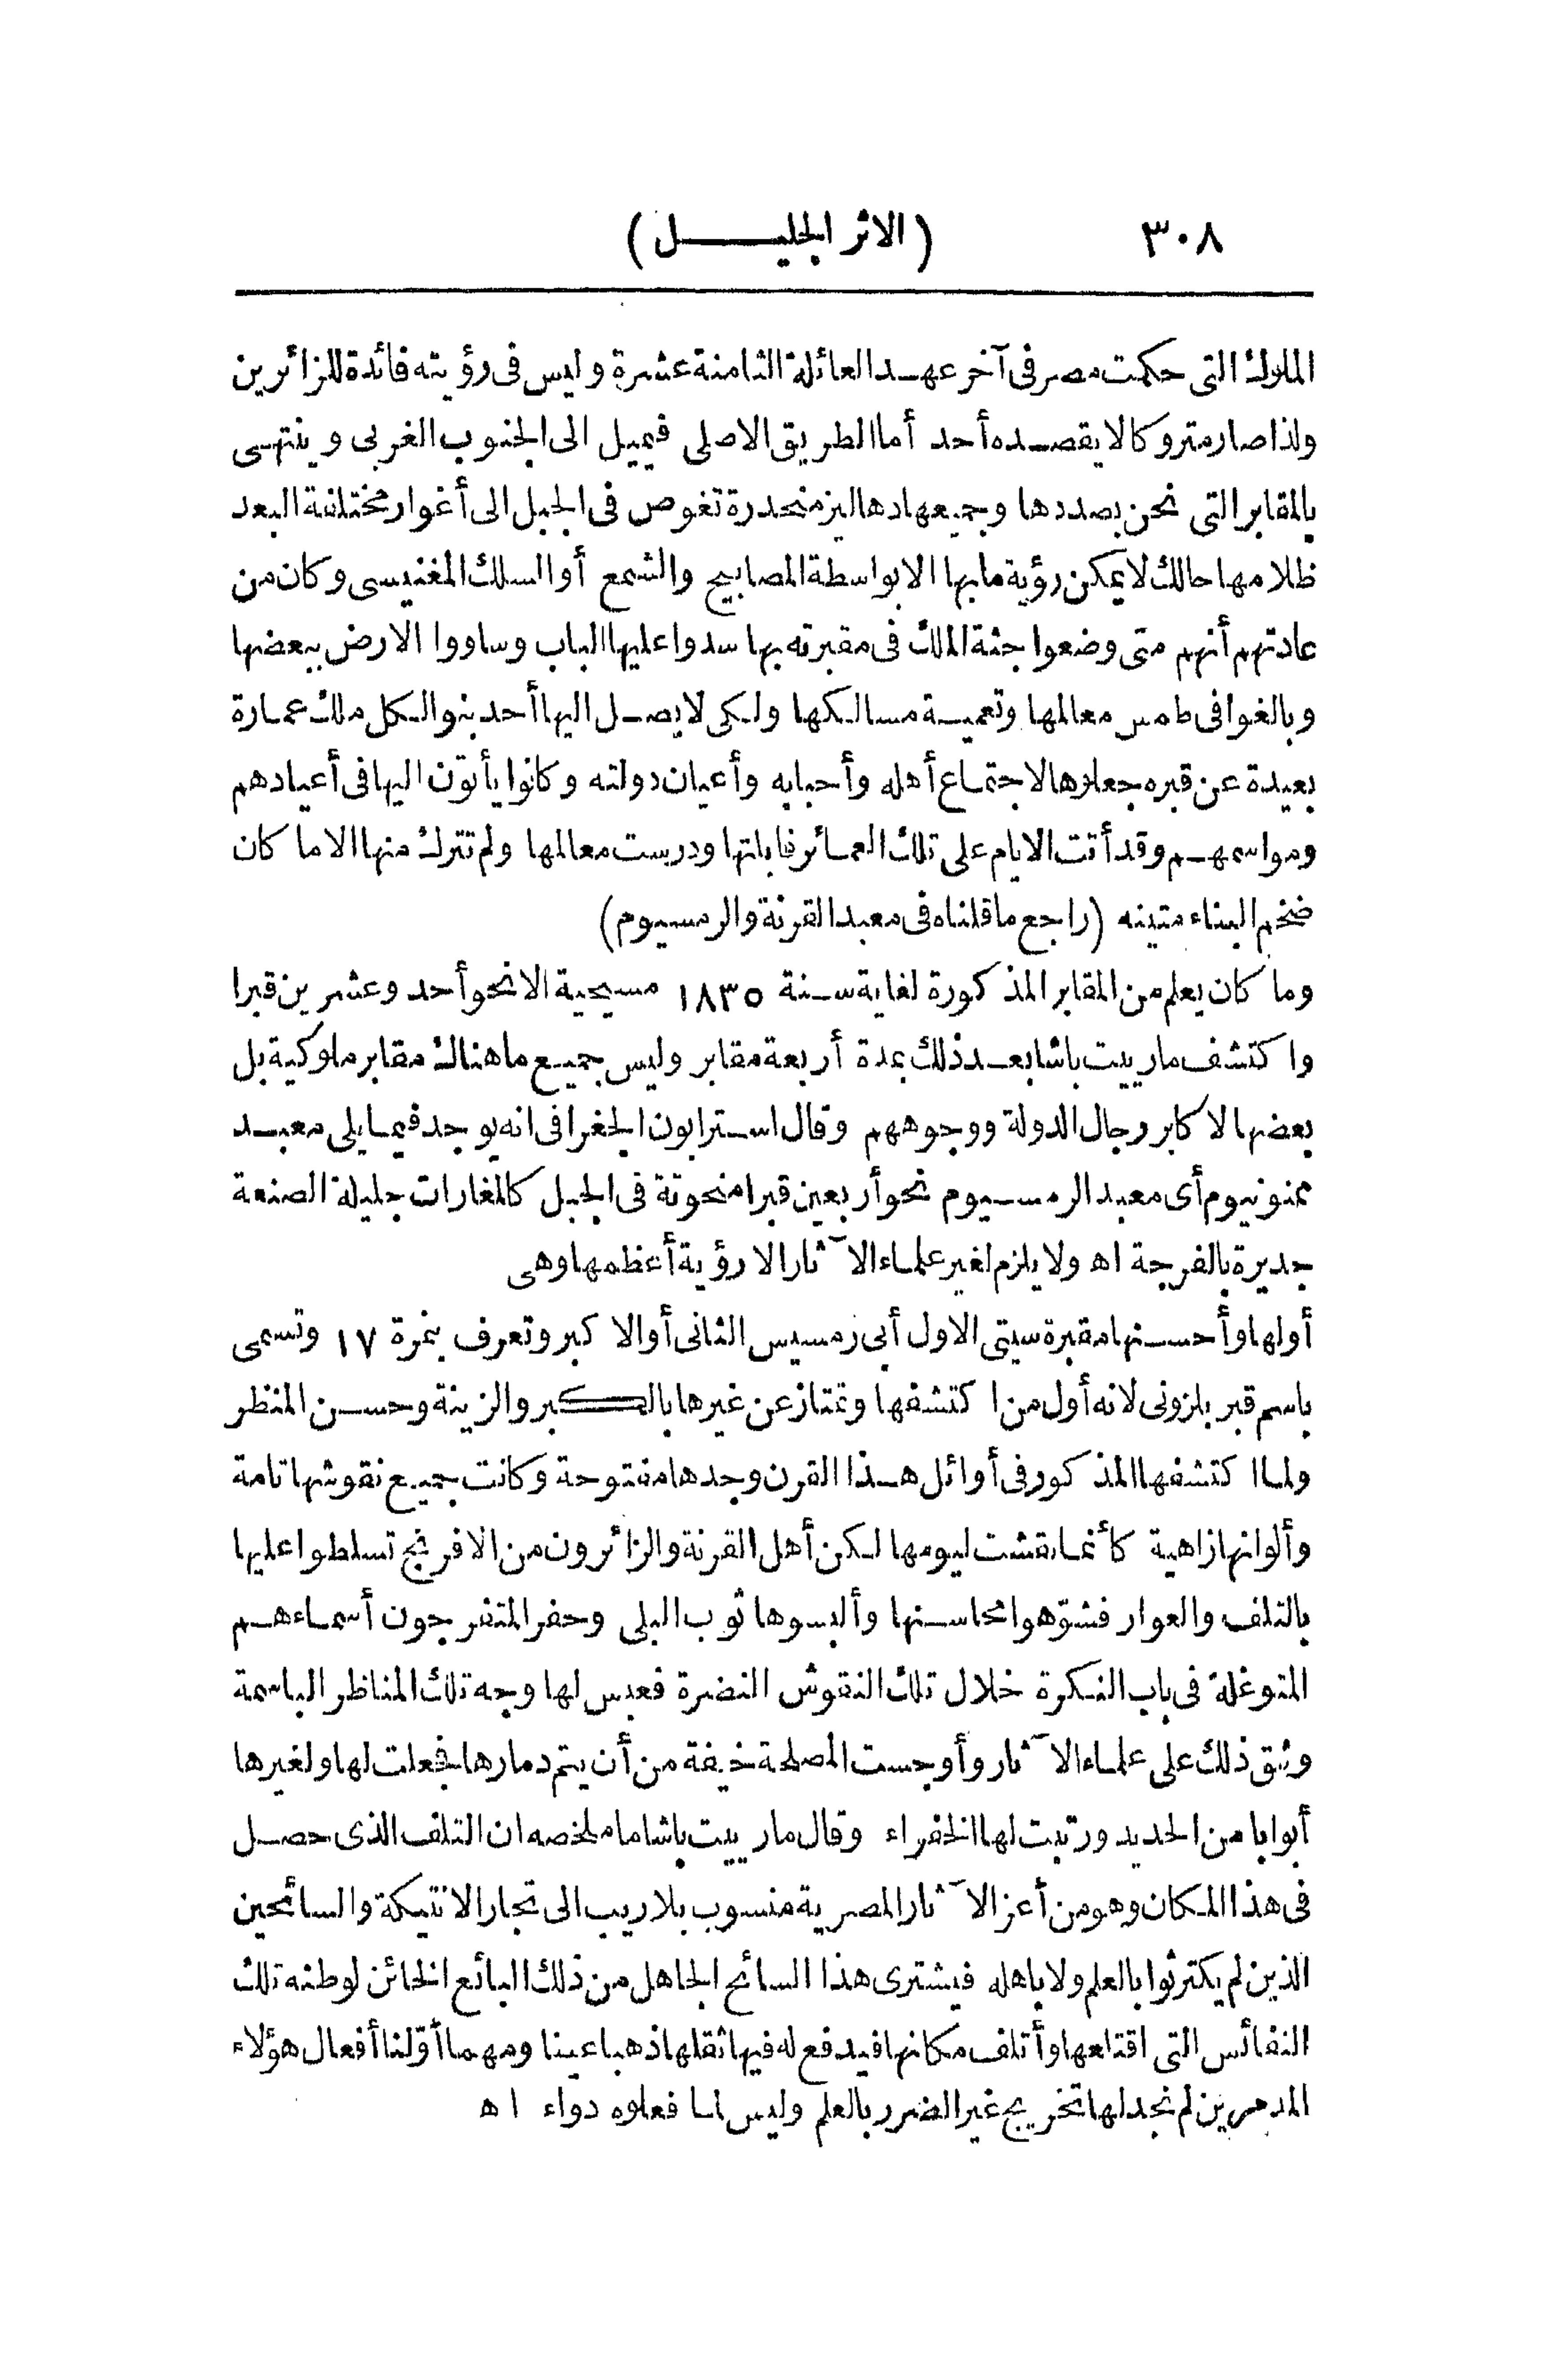 ٣٠٨ (الاثر الجليل)
الملوك التى حكمت مصر فى آخر عهد العائلة الثامنة عشرة وليس فى رؤيته فائدة للزائرين
ولذا صار متروكا لا يقصده أحد أما الطريق الاصلى فيميل الى الجنوب الغربى وينتهى
بالمقابر التى نحن بصددها وجميعها دهاليز منحدرة تغوص فى الجبل الى أغوار مختلفة البعد
ظلامها حالك لا يمكن رؤية ما بها الا بواسطة المصابيح والشمع أو السلك المغنيسى وكان من
عادتهم أنهم متى وضعوا جثة الملك فى مقبرته بها سدوا عليها الباب وساووا الارض ببعضها
وبالغوا فى طمس معالمها وتعمية مسالكها ولكى لا يصل اليها أحد بنوا لكل ملك عمارة
بعيدة عن قبره جعلوها لاجتماع أهله وأحبابه وأعيان دولته وكانوا يأتون اليها فى أعيادهم
ومواسمهم وقد أتت الايام على تلك العمائر فابلتها ودرست معالمها ولم تترك منها الا ما كان
ضخم البناء متينه (راجع ما قلناه فى معبد القرنة والرمسيوم)
وما كان يعلم من المقابر المذكورة لغاية سنة ١٨٣٥ مسيحية الا نحو أحد وعشرين قبرا
واكتشف مارييت باشا بعد ذلك عدة أربعة مقابر وليس جميع ما هناك مقابر ملوكية بل
بعضها لاكابر رجال الدولة ووجوههم وقال استرابون الجغرافى انه يوجد فيما يلى معبد
ممنونيوم أى معبد الرمسيوم نحو أربعين قبرا منحوتة فى الجبل كالمغارات جليلة الصنعة
جديرة بالفرجة اه ولا يلزم لغير علماء الآثار الا رؤية أعظمها وهى
أولها وأحسنها مقبرة سيتى الاول أبى رمسيس الثانى أو الاكبر وتعرف بنمرة ١٧ وتسمى
باسم قبر بلزونى لانه أول من اكتشفها وتمتاز عن غيرها بالكبر والزينة وحسن المنظر
ولما اكتشفها المذكور فى أوائل هذا القرن وجدها مفتوحة وكانت جميع نقوشها تامة
وألوانها زاهية كأنما نقشت ليومها لكن أهل القرنة والزائرون من الافرنج تسلطوا عليها
بالتلف والعوار فشوّهوا محاسنها وألبسوها ثوب البلى وحفر المتفرجون أسماءهم
المتوغلة فى باب النكرة خلال تلك النقوش النضرة فعبس لها وجه تلك المناظر الباسمة
وشق ذلك على علماء الآثار وأوجست المصلحة خيفة من أن يتم دمارها فجعلت لها ولغيرها
أبوابا من الحديد ورتبت لها الخفراء وقال مارييت باشا ما ملخصه ان التلف الذى حصل
فى هذا المكان وهو من أعز الآثار المصرية منسوب بلا ريب الى تجار الانتيكة والسائحين
الذين لم يكترثوا بالعلم ولا باهله فيشترى هذا السائح الجاهل من ذلك البائع الخائن لوطنه تلك
النفائس التى اقتلعها وأتلف مكانها فيدفع له فيها ثقلها ذهبا عينا ومهما أوّلنا أفعال هؤلاء
المدمرين لم نجد لها تخريج غير الضرر بالعلم وليس لما فعلوه دواء اه